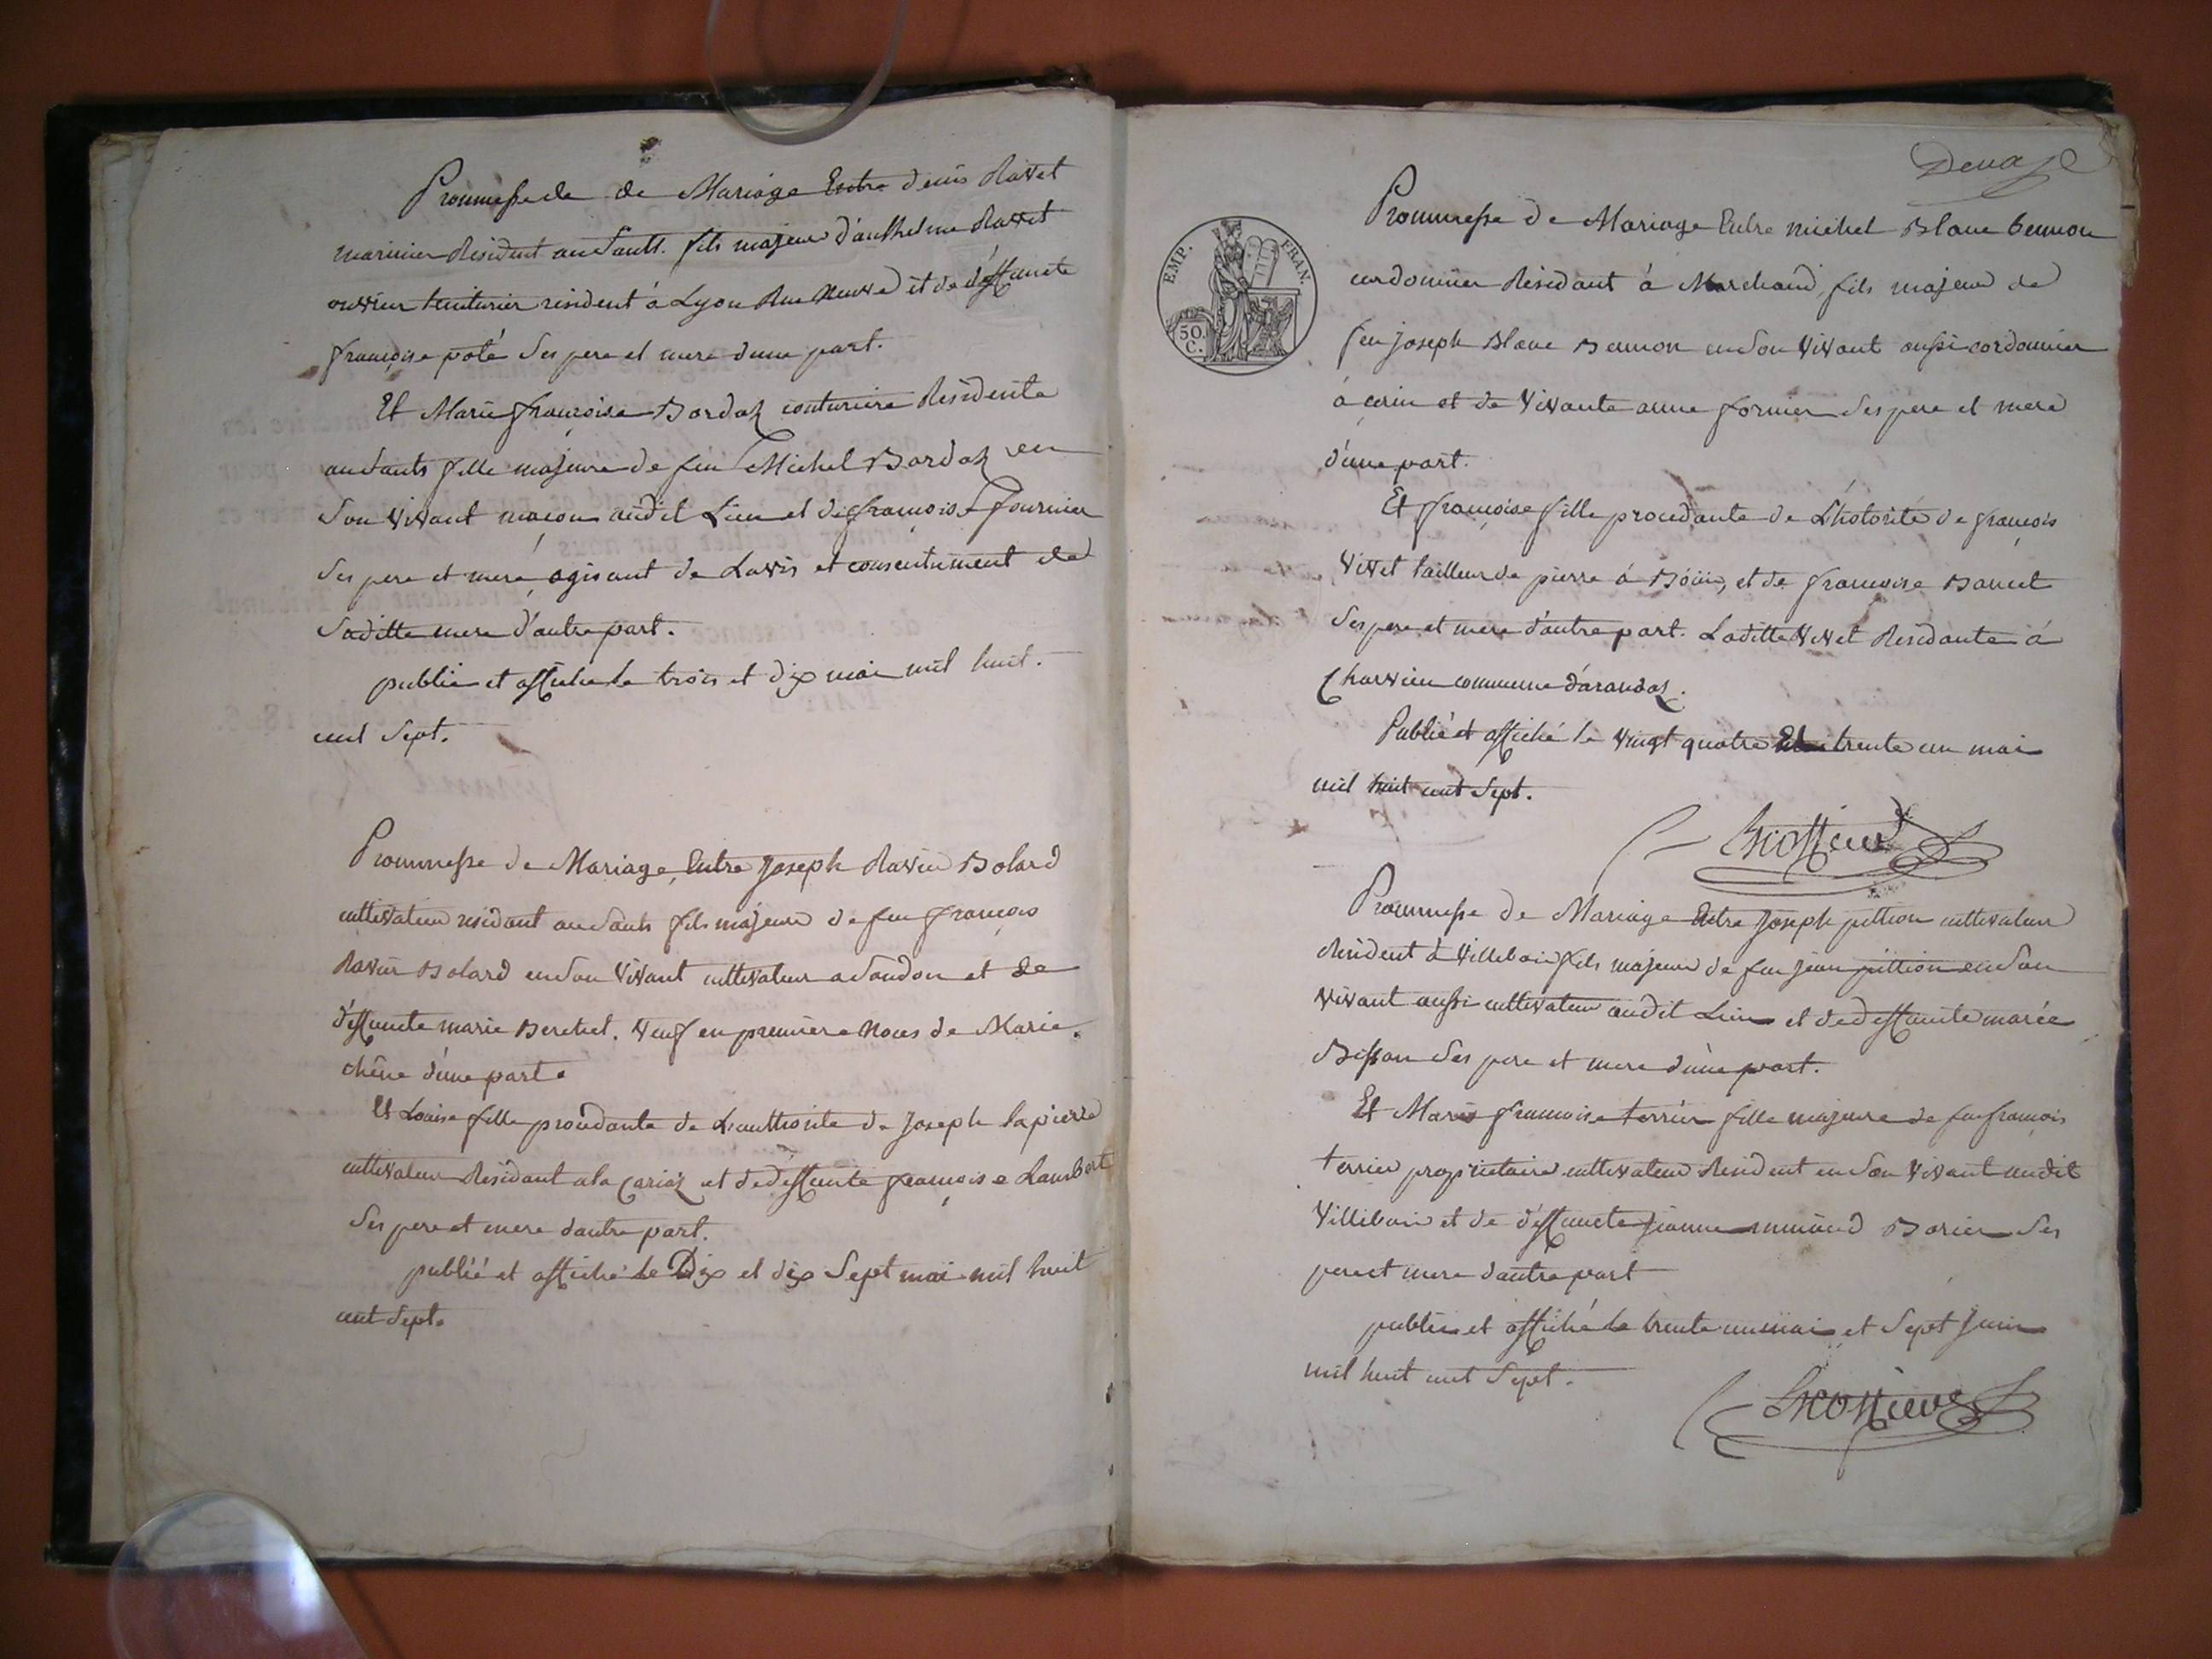 Prommesse de de Mariage Entre denis Ravet
marinier Résident au Sault. fils majeur d'anthelme Ravet
ouvrier teinturier résident à Lyon Rue Neuve et de déffuncte
françoise poté Ses pere et mere d'une part.
Et Marie françoise Bordaz couturiere Résidente
au Sault fille majeure de feu Michel Bordaz en
Son vivant maçon audit Lieu et de françoise fournier
Ses pere et mere, agissant de Lavis et consentument de
Saditte mere d'autre part.
publié et affiché le trois et dix mai mil huit
cent Sept.
Prommesse de Mariage, Entre Joseph Ravier Bolard
cultivateur résidant au Sault fils majeur de feu françois
Ravier Bolard en Son Vivant cultivateur a Soudon et de
déffuncte marie Berchet. Veuf en premiere Noces de Marie
chêne d'une part.
Et Louise fille procédante de L'authorité de Joseph Lapierre
cultivateur Résidant a la Cariaz et de déffunte françoise Lambert
Ses pere et mere d'autre part.
publié et affiché le Dix et dix Sept mai mil huit
cent Sept.
EMP. FRAN.
50 C.
Prommesse de Mariage Entre michel Blanc bennon
cordonnier Résidant à Marchand, fils majeur de
feu joseph Blanc Bennon en Son Vivant aussi cordonnier
à cerin et de Vivante anne fornier Ses pere et mere
d'une part.
Et françoise fille procedante de L'hotorité de françois
Vivet tailleur de pierre à, et de francoise Bancet
Ses pere et mere d'autre part. Laditte Vivet Residante à
Charvieu commune d'arandaz.
Publié et affiché le Vingt quatre Et trente un mai
mil huit cent Sept.
Prommesse de Mariage Entre Joseph pittion cultivateur
Résident à Villeboi fils majeur de feu jean pittion en Son
Vivant aussi cultivateur audit Lieu et de deffunte marie
Bisson Ses pere et mere d'une part.
Et Marie francoise terrier fille majeure de feu françois
terrier propriétaire cultivateur Résident en Son Vivant audit
Villeboi et de déffuncte jeanne Borier Ses
pere et mere d'autre part
publié et affiché le trente un mai et Sept Juin
mil huit cent Sept.